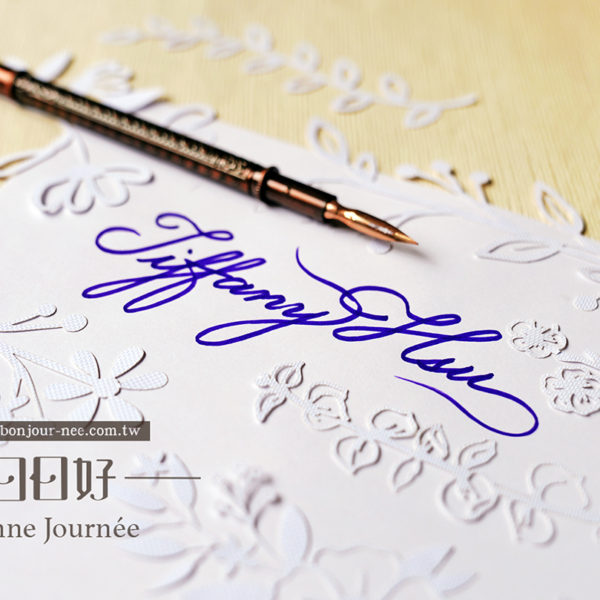 Tiffany Hsu
bonjour-nee.com.tw
日日好
nne Journée